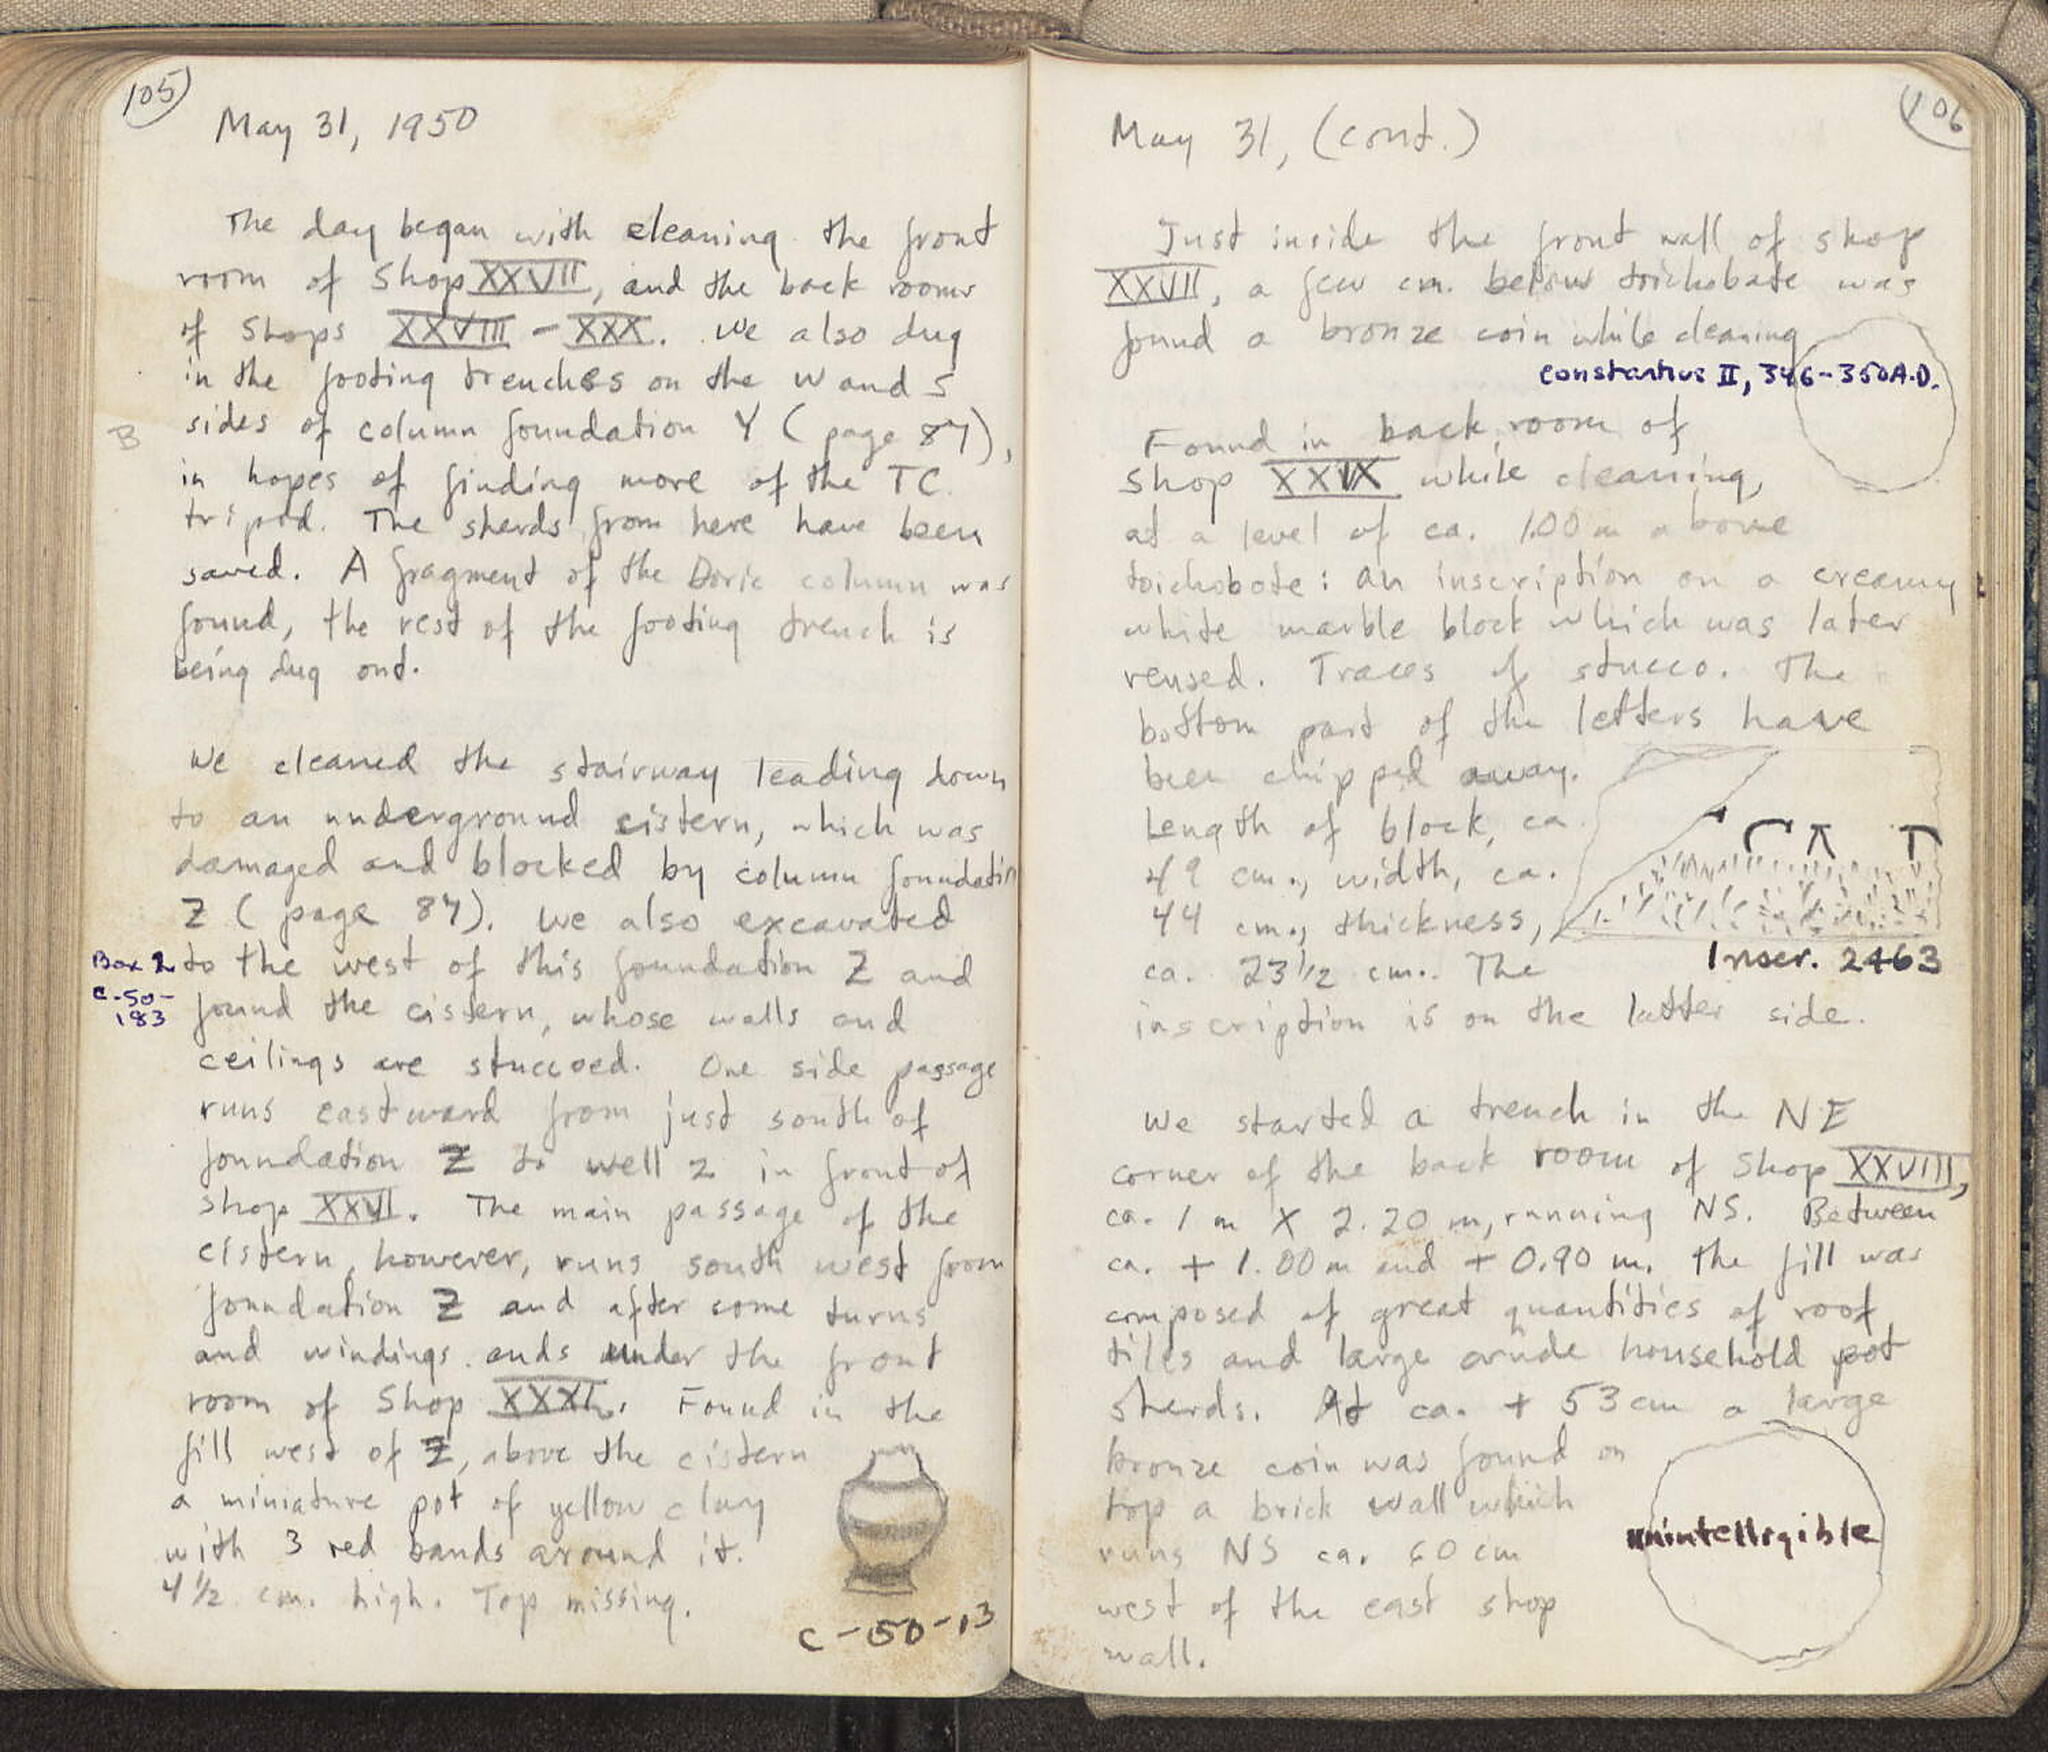 105
May 31, 1950
The day began with cleaning the front
room of Shop XXVII, and the back rooms
of Shops XXVIII - XXX. We also dug
in the footing trenches on the W and S
sides of column foundation Y (page 87),
B
in hopes of finding more of the TC
tripod. The sherds from here have been
saved. A fragment of the Doric column was
found, the rest of the footing trench is
being dug out.
We cleaned the stairway leading down
to an underground cistern, which was
damaged and blocked by column foundation
Z (page 87). We also excavated
Box 2
to the west of this foundation Z and
C-50-
183
found the cistern, whose walls and
ceilings are stuccoed. One side passage
runs eastward from just south of
foundation Z to well 2 in front of
shop XXVI. The main passage of the
cistern, however, runs south west from
foundation Z and after some turns
and windings ends under the front
room of Shop XXXI. Found in the
fill west of Z, above the cistern
a miniature pot of yellow clay
with 3 red bands around it.
4 1/2 cm. high. Top missing.
C-50-13
106
May 31, (cont.)
Just inside the front wall of shop
XXVII, a few cm. below toichobate was
found a bronze coin while cleaning
Constantius II, 346-350 A.D.
Found in back room of
shop XXIX while cleaning,
at a level of ca. 1.00 m above
toichobate: an inscription on a creamy
white marble block which was later
reused. Traces of stucco. The
bottom part of the letters have
been chipped away.
Length of block, ca.
49 cm., width, ca.
44 cm., thickness,
ca. 23 1/2 cm.. The
Inscr. 2463
inscription is on the latter side.
We started a trench in the NE
corner of the back room of Shop XXVIII,
ca. 1 m X 2.20 m, running NS. Between
ca. + 1.00 m and + 0.90 m. the fill was
composed of great quantities of roof
tiles and large crude household pot
sherds. At ca. + 53 cm a large
bronze coin was found on
top a brick wall which
unintelligible
runs NS ca. 60 cm
west of the east shop
wall.